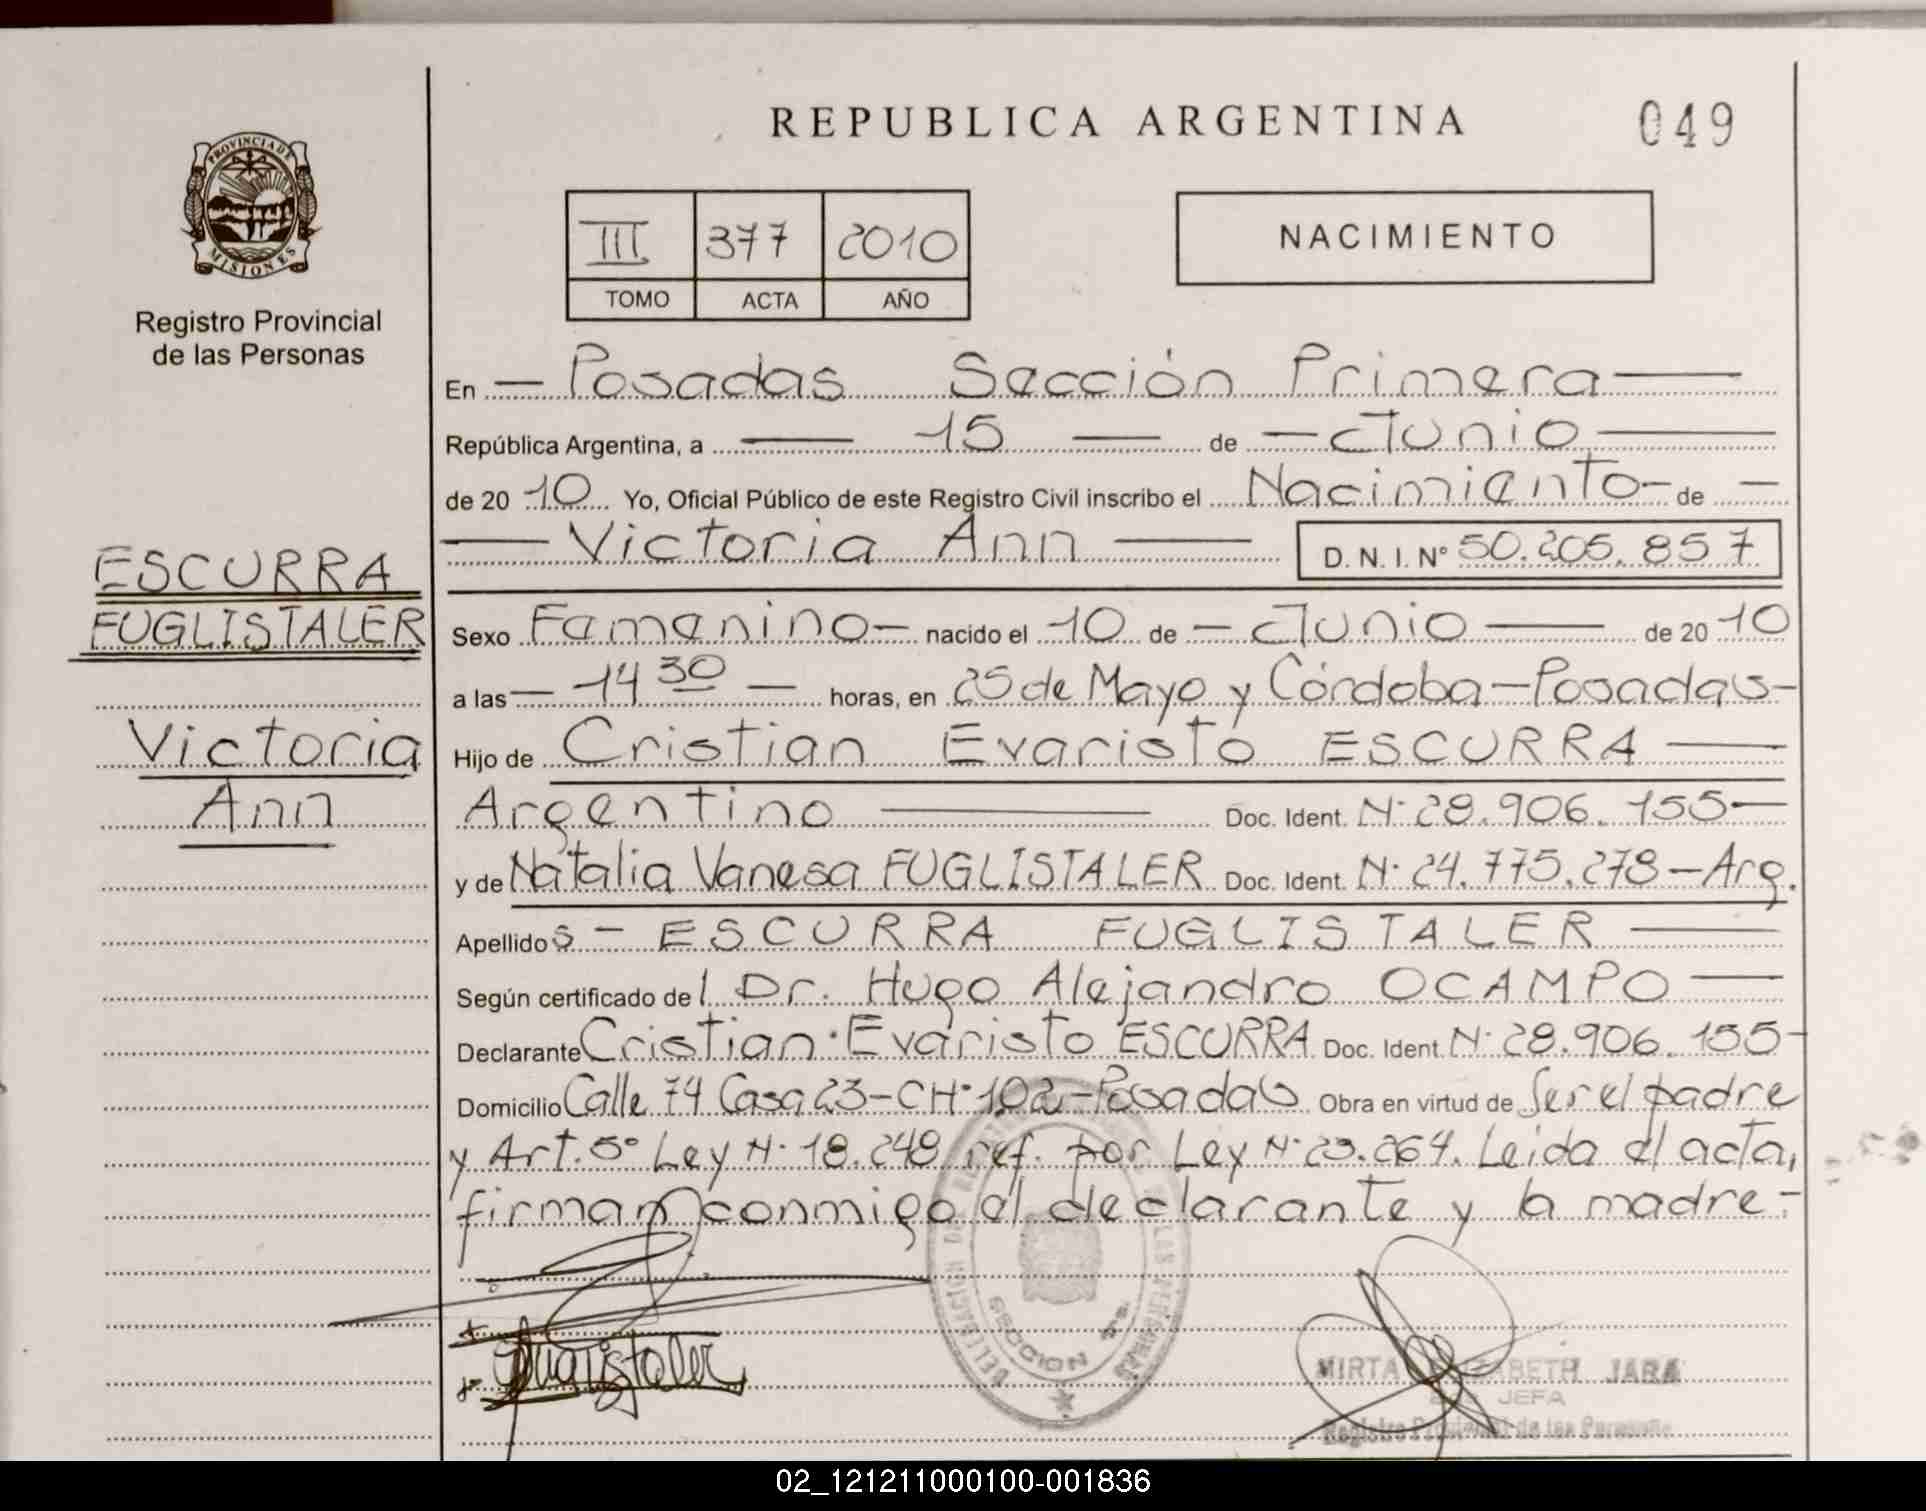 REPUBLICA ARGENTINA
049
PROVINCIA DE
MISIONES
Registro Provincial
de las Personas
III 377 2010
TOMO ACTA AÑO
NACIMIENTO
En — Posadas Sección Primera —
República Argentina, a — 15 — de — Junio —
de 20 10 Yo, Oficial Público de este Registro Civil inscribo el Nacimiento - de —
— Victoria Ann — D. N. I. N° 50.205.857
ESCURRA
FUGLISTALER
Victoria
Ann
Sexo Femenino — nacido el 10 de — Junio — de 20 10
a las — 14 30 — horas, en 25 de Mayo y Córdoba — Posadas -
Hijo de Cristian Evaristo ESCURRA —
Argentino — Doc. Ident. N° 28.906.155 —
y de Natalia Vanesa FUGLISTALER Doc. Ident. N° 24.775.278 — Arg.
Apellido s — ESCURRA FUGLISTALER —
Según certificado de l Dr. Hugo Alejandro OCAMPO —
Declarante Cristian Evaristo ESCURRA Doc. Ident. N° 28.906.155 -
Domicilio Calle 74 Casa 23 - CH° 102 - Posadas Obra en virtud de Ser el padre
y Art. 5° Ley N° 18.248 ref. por Ley N° 23.264. Leida el acta,
firman conmigo el declarante y la madre.-
Fuglistaler
DELEGACION DE LAS PERSONAS
SECCION 1ra.
MIRTA ELIZABETH JARA
JEFA
Registro Provincial de las Personas
02_121211000100-001836